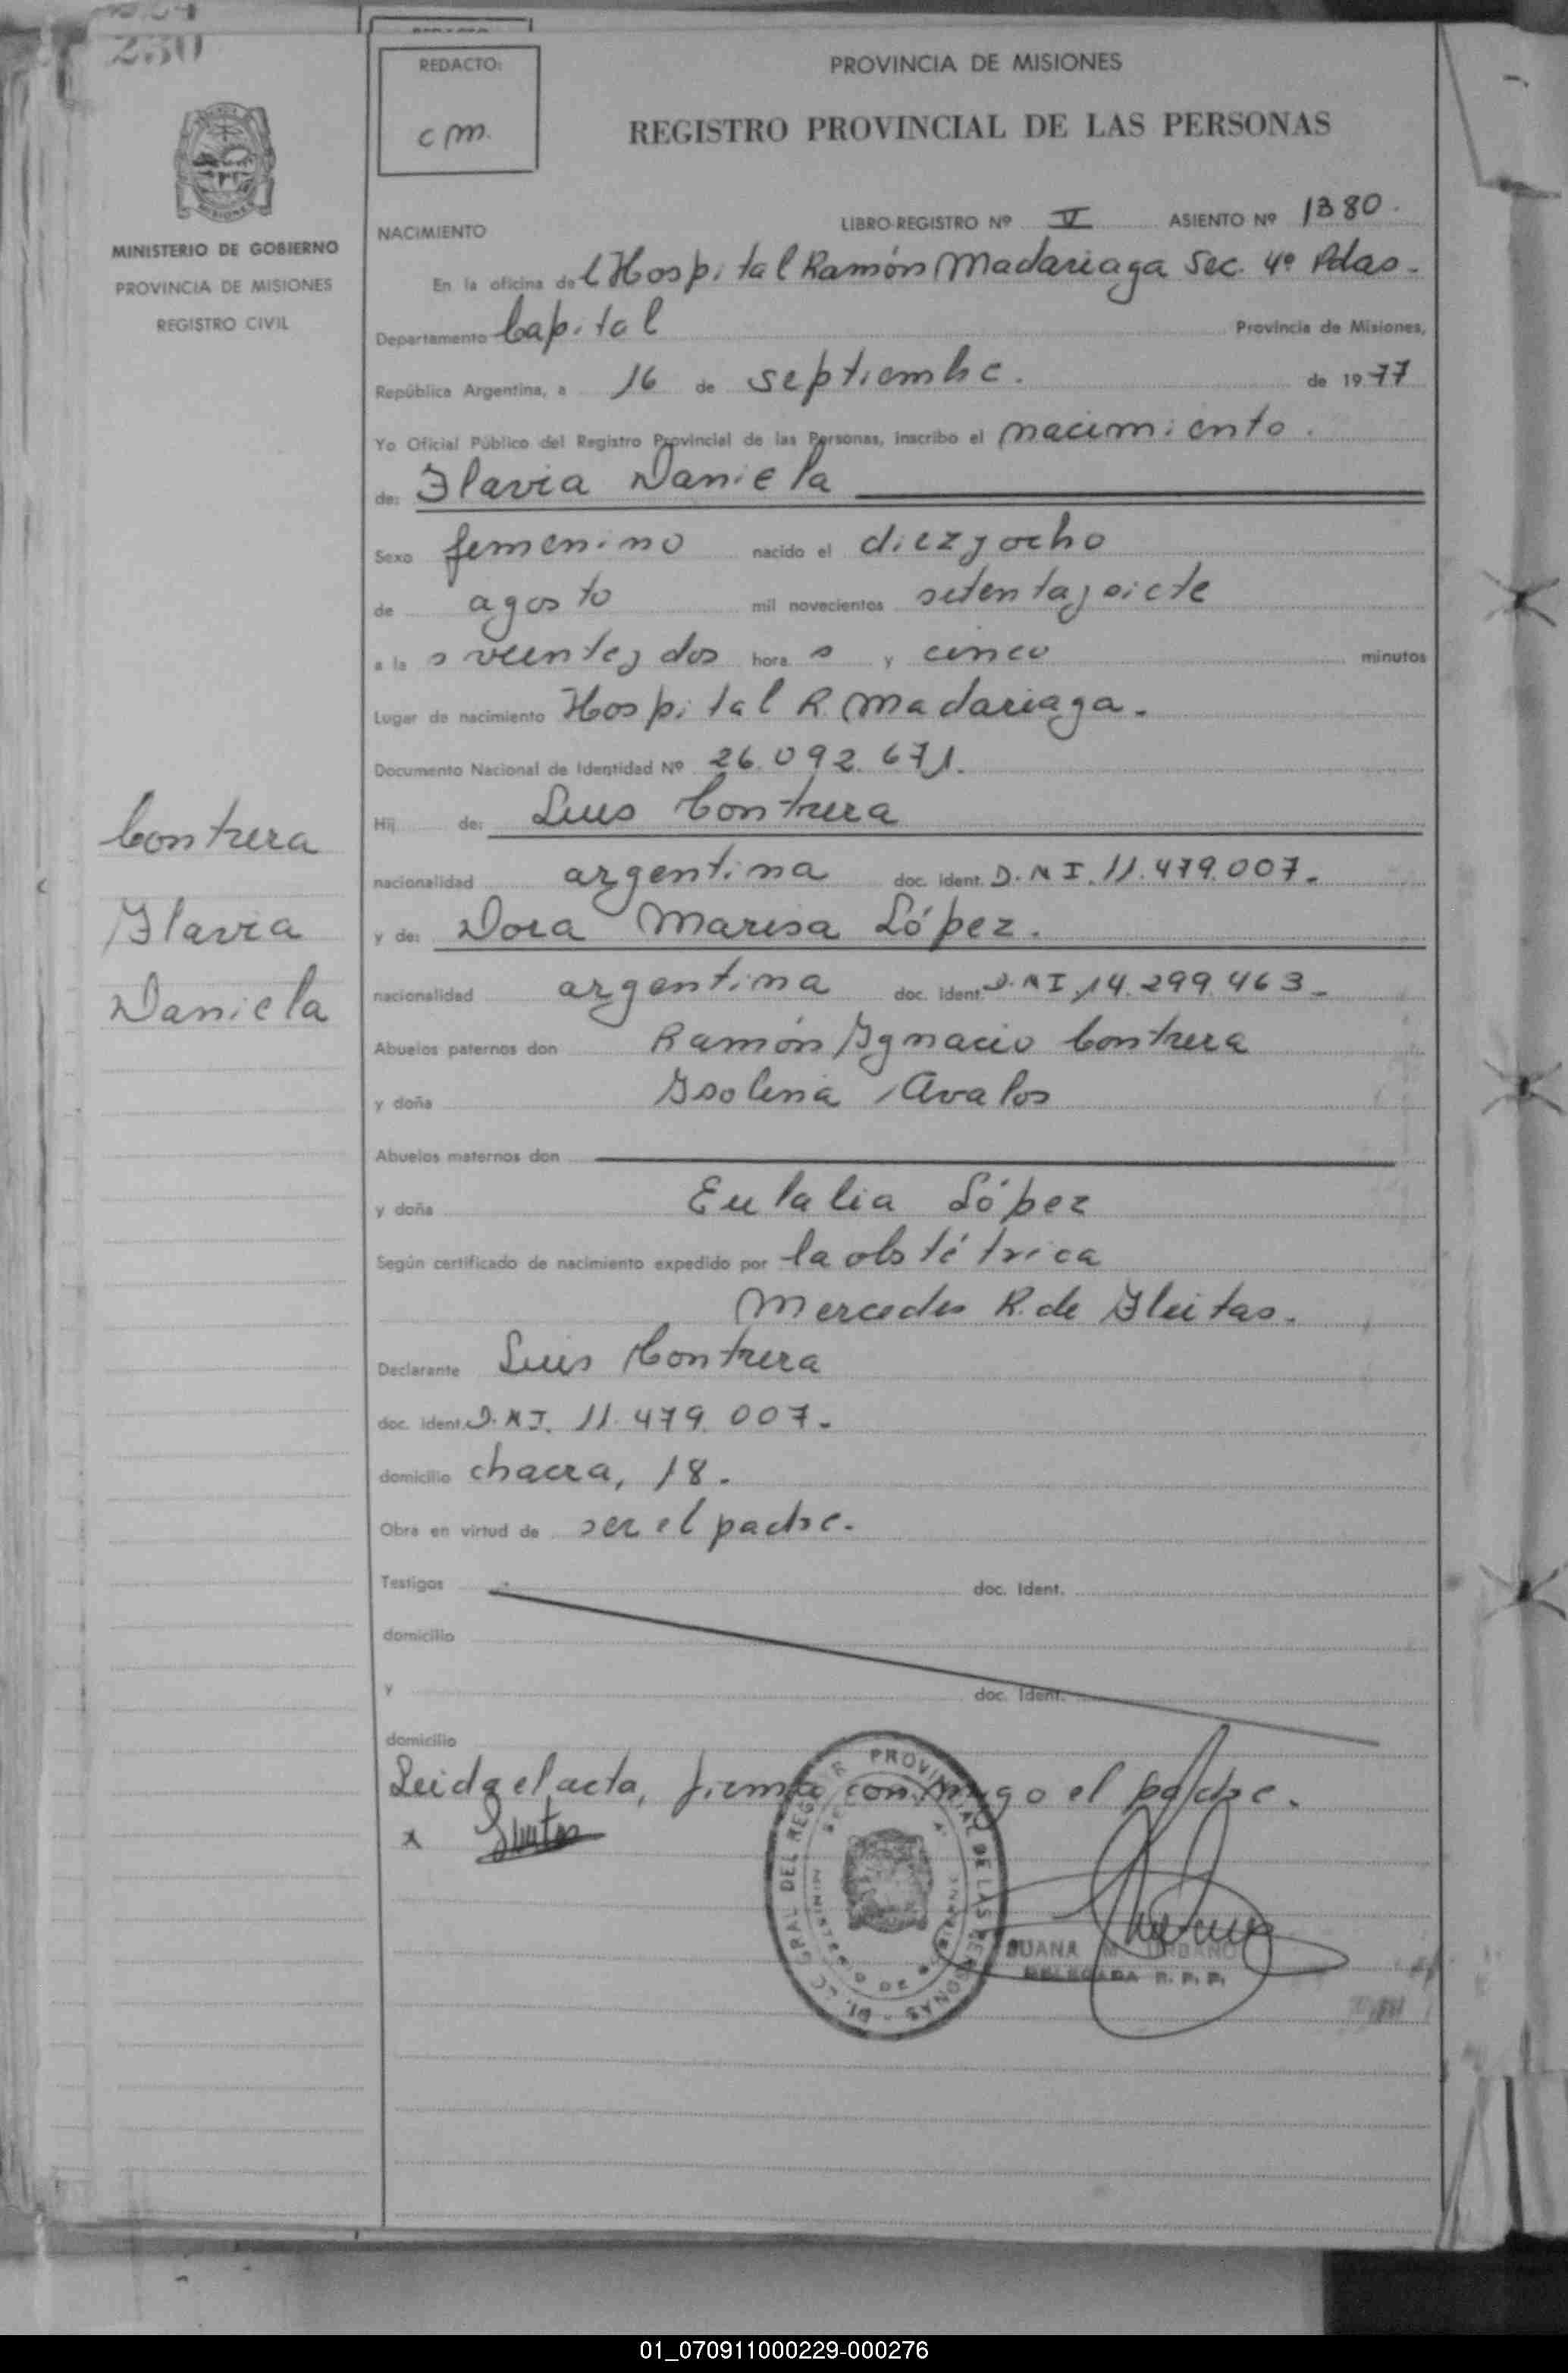 230
MINISTERIO DE GOBIERNO
PROVINCIA DE MISIONES
REGISTRO CIVIL
Contrera
Flavia
Daniela
REDACTO:
cm.
PROVINCIA DE MISIONES
REGISTRO PROVINCIAL DE LAS PERSONAS
NACIMIENTO LIBRO-REGISTRO Nº V ASIENTO Nº 1380.
En la oficina del Hospital Ramón Madariaga Sec. 4º Pdas.
Departamento Capital Provincia de Misiones,
República Argentina, a 16 de septiembre. de 1977
Yo Oficial Público del Registro Provincial de las Personas, inscribo el nacimiento.
de: Flavia Daniela
Sexo femenino nacido el diez y ocho
de agosto mil novecientos setenta y siete
a las veinte y dos horas y cinco minutos
Lugar de nacimiento Hospital R. Madariaga.
Documento Nacional de Identidad Nº 26.092.671.
Hij de: Luis Contrera
nacionalidad argentina doc. ident. D.N.I. 11.479.007.
y de: Dora Marisa López.
nacionalidad argentina doc. ident. D.N.I. 14.299.463.
Abuelos paternos don Ramón Ygnacio Contrera
y doña Ysolina Avalos
Abuelos maternos don
y doña Eulalia López
Según certificado de nacimiento expedido por la obstétrica
Mercedes R. de Fleitas.
Declarante Luis Contrera
doc. ident. D.N.I. 11.479.007.
domicilio chacra, 18.
Obra en virtud de ser el padre.
Testigos doc. Ident.
domicilio
y doc. Ident.
domicilio
Leida el acta, firma conmigo el padre.
x
PROVINCIAL DE LAS PERSONAS
GRAL DEL REG
JUANA M. URBANO
DELEGADA R. P. P.
01_070911000229-000276